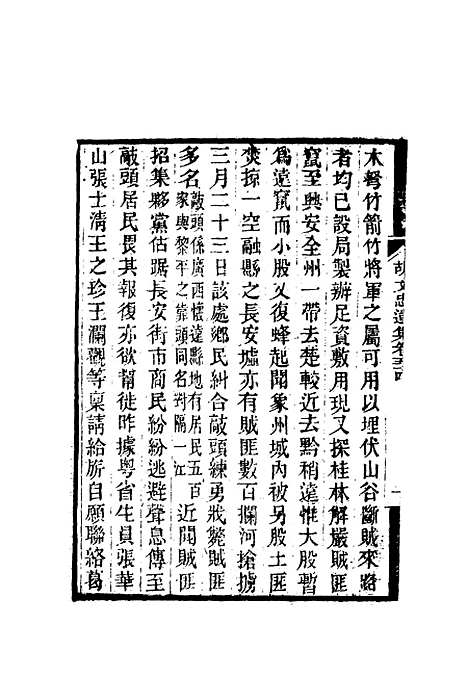 胡文忠遺集卷五十四
木弩竹箭竹將軍之屬可用以埋伏山谷斷賊來路
者均已設局製辦足資敷用現又探桂林解嚴賊匪
竄至興安全州一帶去楚較近去黔稍遠惟大股暫
爲遠竄而小股又復蜂起聞象州城內被另股土匪
焚掠一空融縣之長安墟亦有賊匪數百攔河搶擄
三月二十三日該處鄉民糾合敲頭練勇戕斃賊匪
多名敲頭係廣西懷遠縣地有居民五百家與黎平之靠頭同名對隔一江近聞賊匪
招集夥黨佔踞長安街市商民紛紛逃避聲息傳至
敲頭居民畏其報復亦欲幫徙昨據粵省生員張華
山張士淸王之珍王瀾觀等稟請給旂自願聯絡葛